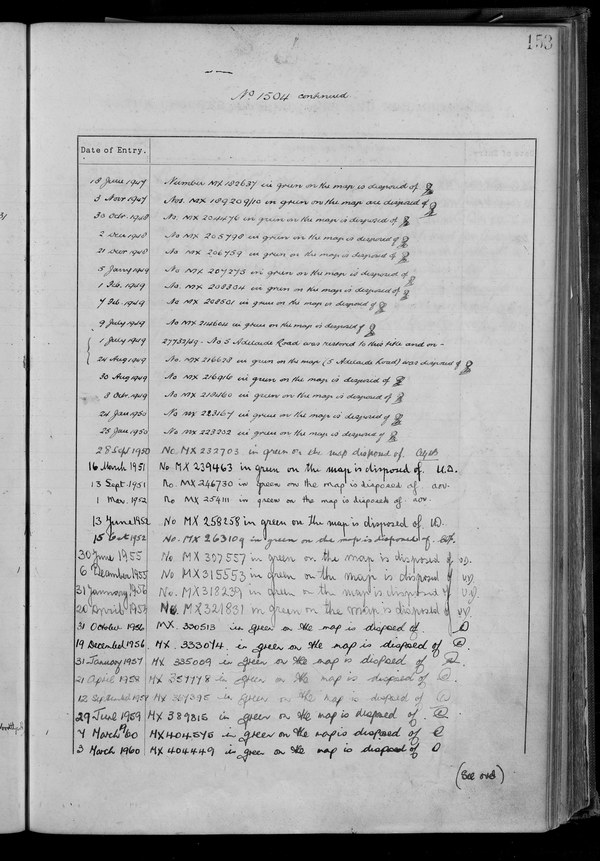 153
No 1504 continued
Date of Entry.
18 June 1947 Number MX 182637 in green on the map is disposed of
3 Novr 1947 Nos. MX 189209/10 in green on the map are disposed of
30 Octr. 1948 No. MX 204476 in green on the map is disposed of
2 Decr 1948 No MX 205798 in green on the map is disposed of
21 Decr 1948 No MX 206759 in green on the map is disposed of
5 Jany 1949 No MX 207275 in green on the map is disposed of
1 Feb. 1949 No. MX 208304 in green on the map is disposed of
7 Feb. 1949 No MX 208501 in green on the map is disposed of
9 July 1949 No MX 214604 in green on the map is disposed of
1 July 1949 27752/49. No 5 Adelaide Road was restored to this title and on -
24 Aug 1949 No. MX 216628 in green on the map (5 Adelaide Road) was disposed of
30 Aug 1949 No MX 216916 in green on the map is disposed of
3 Octr 1949 No. MX 218460 in green on the map is disposed of
24 Jan 1950 No MX 223167 in green on the map is disposed of
25 Jan 1950 No MX 223232 in green on the map is disposed of
28 Sept 1950 No. MX 232703 in green on the map disposed of.
16 March 1951 No MX 239463 in green on the map is disposed of. U.D.
13 Sept. 1951 No. MX 246730 in green on the map is disposed of. aov.
1 Mar. 1952 No MX 254111 in green on the map is disposed of. aov.
13 June 1952 No MX 258258 in green on the map is disposed of UD.
15 Oct 1952 No. MX 263109 in green on the map is disposed of.
30 June 1955 No. MX 307557 in green on the map is disposed of
6 December 1955 No. MX315553 in green on the map is disposed of
31 January 1956 No. MX318239 in green on the map is disposed of
20 April 1956 No. MX321831 in green on the map is disposed of
31 October 1956 MX. 330513 in green on the map is disposed of.
19 December 1956. MX. 333074. in green on the map is disposed of
31 January 1957 MX 335009 in green on the map is disposed of
21 April 1958 MX 357778 in green on the map is disposed of
12 September 1958 MX in green on the map is disposed of
29 June 1959 MX 387815 in green on the map is disposed of.
7 March 1960 MX404575 in green on the map is disposed of
3 March 1960 MX404449 in green on the map is disposed of
(See over)